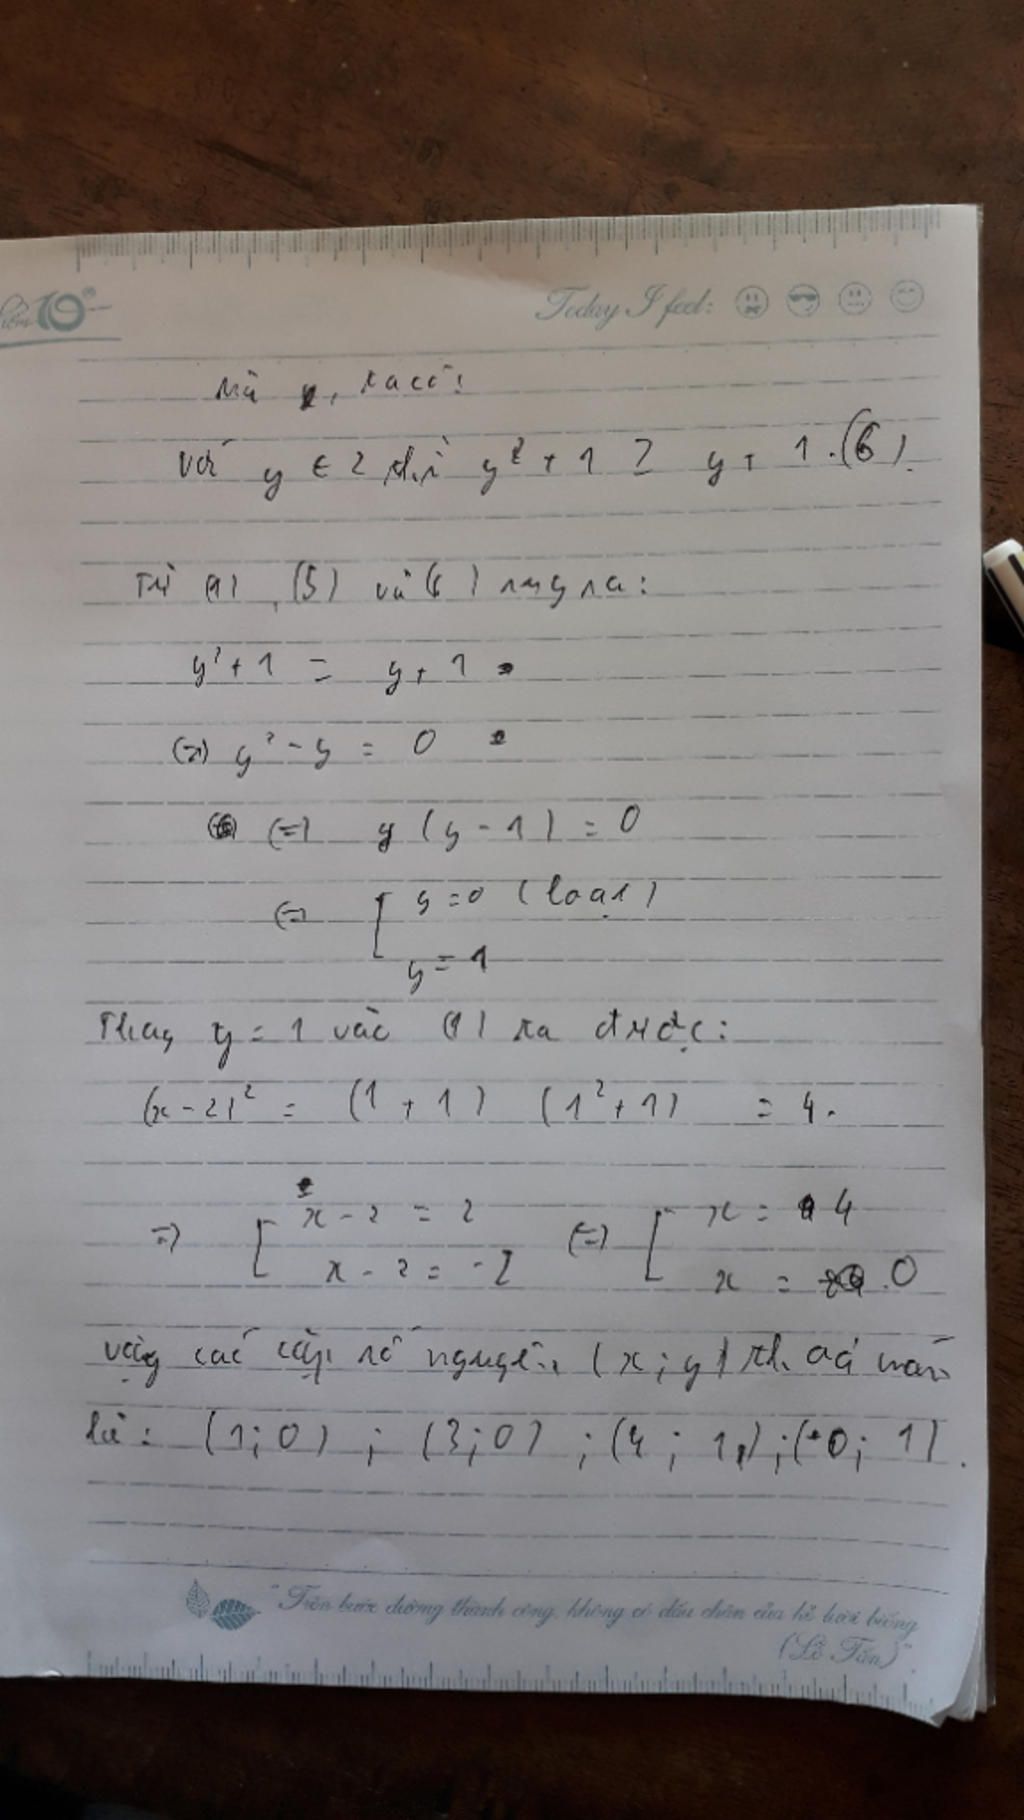 10
Today I feel:
Mà , ta có:
Với y ∈ Z thì y² + 1 ≥ y + 1. (6).
Từ (1), (5) và (6) suy ra:
y² + 1 = y + 1
(=) y² - y = 0
(=) y (y - 1) = 0
(=) [ y = 0 (loại)
y = 1
Thay y = 1 vào (1) ta được:
(x - 2)² = (1 + 1) (1² + 1) = 4.
=) [ x - 2 = 2 (=) [ x = 4
x - 2 = -2 x = 0
Vậy các cặp số nguyên (x; y) thoả mãn
là: (1; 0) ; (3; 0) ; (4; 1) ; (0; 1).
"Trên bước đường thành công, không có dấu chân của kẻ lười biếng
(Lỗ Tấn)"